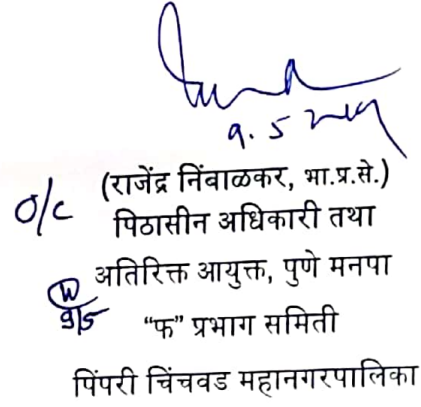 ९. ५ २०१९
O/C (राजेंद्र निंबाळकर, भा.प्र.से.)
पिठासीन अधिकारी तथा
अतिरिक्त आयुक्त, पुणे मनपा
W
9/5 “फ” प्रभाग समिती
पिंपरी चिंचवड महानगरपालिका